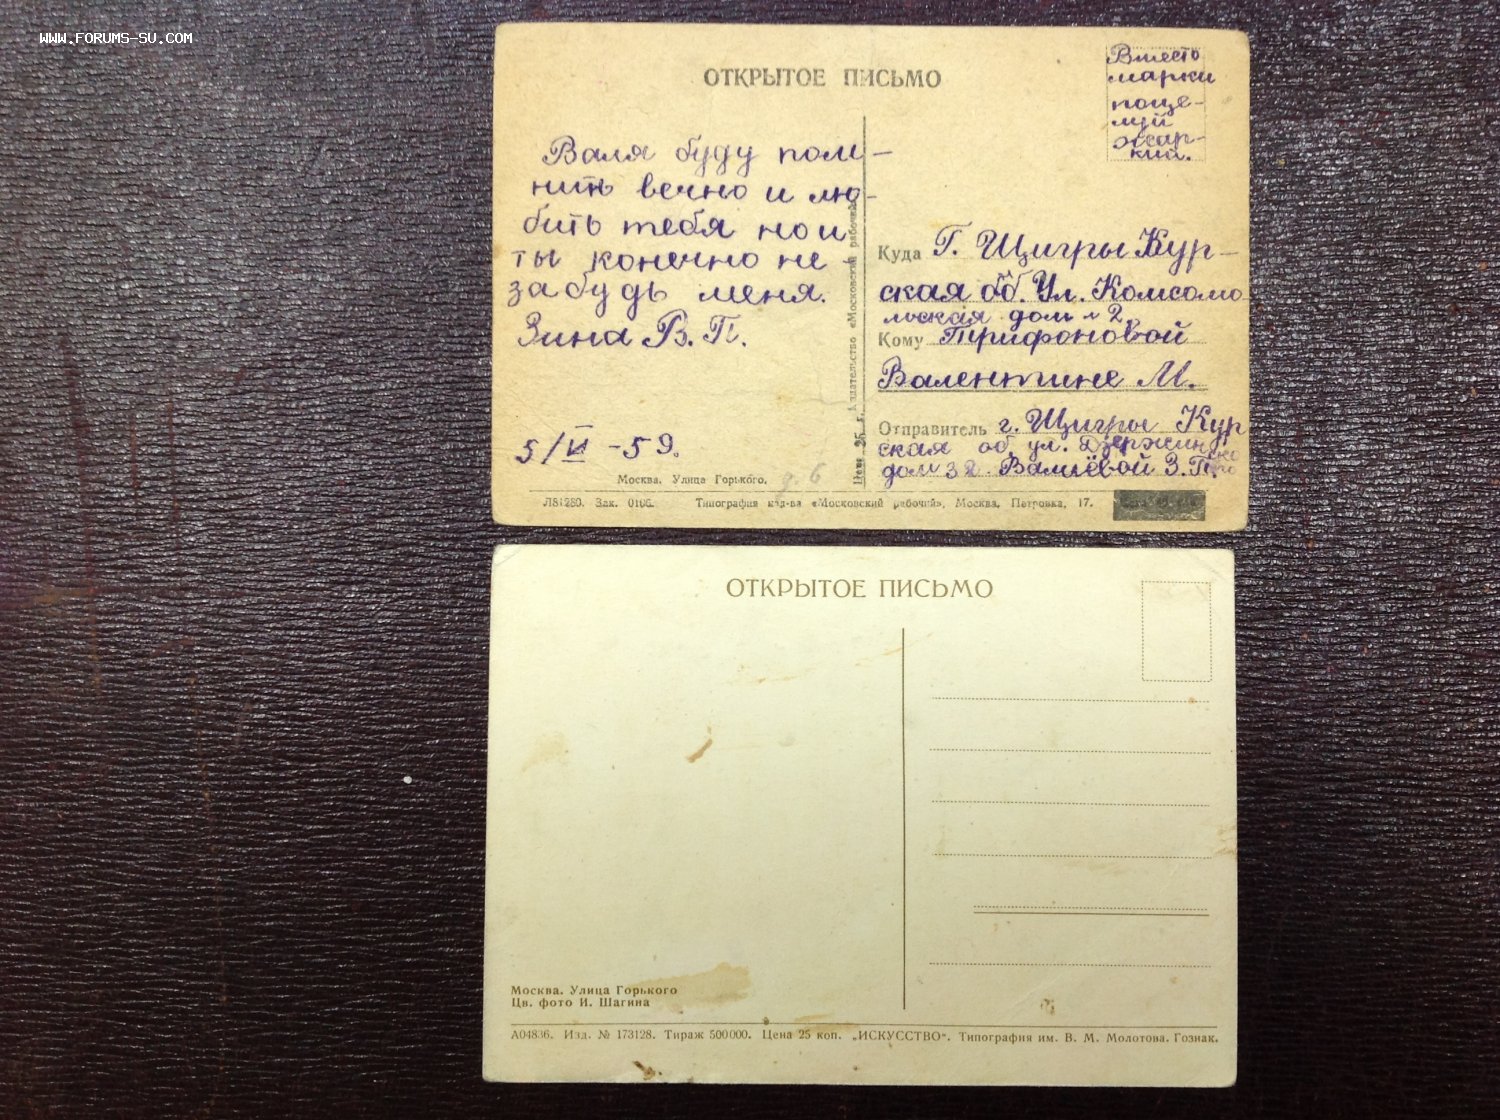 WWW.FORUMS-SU.COM
ОТКРЫТОЕ ПИСЬМО
Вместо
марки
поце-
луй
жар-
кий.
Валя буду пом-
нить вечно и лю-
бить тебя но и
ты конечно не-
забудь меня.
Зина В. П.
5/VI -59.
Москва. Улица Горького.
д. 6
Издательство «Московский рабочий»
Цена 25 к.
Куда Г. Щигры Кур-
ская об. Ул. Комсомо
льская дом 2.
Кому Трифоновой
Валентине М.
Отправитель г. Щигры Кур
ская об ул. Дзержинско
дом 32 З. П.
Л81280. Зак. 0106. Типография изд-ва «Московский рабочий», Москва, Петровка, 17.
ОТКРЫТОЕ ПИСЬМО
Москва. Улица Горького
Цв. фото И. Шагина
А04836. Изд. № 173128. Тираж 500000. Цена 25 коп. „ИСКУССТВО“. Типография им. В. М. Молотова. Гознак.